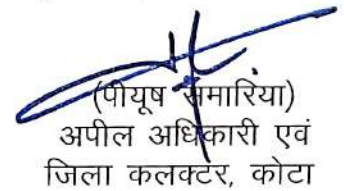 (पीयूष समारिया)
अपील अधिकारी एवं
जिला कलक्टर, कोटा